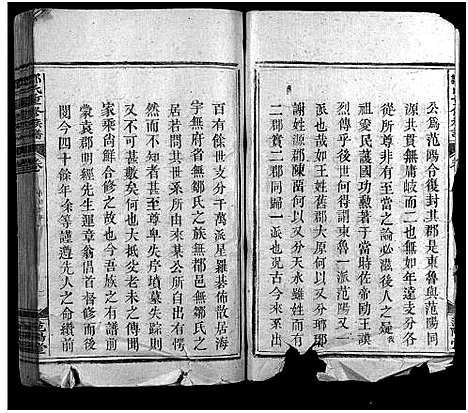 公爲范陽合復封其郡是東魯與范陽同
源共貫無庸岐而二也無如年遠支分各
從所尊莫有非之者然至當之論必滋後人之疑
祖愛民護國功莫大焉當時佐帝勛王謨
烈傳乎後世何得謂東魯一派范陽又一
派也哉如王姓舊郡大原何以又分瑯琊
謝姓源郡陳蕾何以又分天水雖姓而有
二郡實二郡同歸一派也况古今來系出
百有餘世支分千萬派星羅碁佈散居海
宇無府省無鄒氏之族無都邑無鄒氏之
居若問其世系所由來某公所自出有愣
然不知者甚至尊卑失序墳墓失踪則
又不可甚數矣何也大抵父老未之傳聞
家乘尚鮮合修之故也今吾族之有譜前
蒙袁郡明經先生運章翁倡首督修而後
閱今四十餘年余等謹遵先人之命纘前